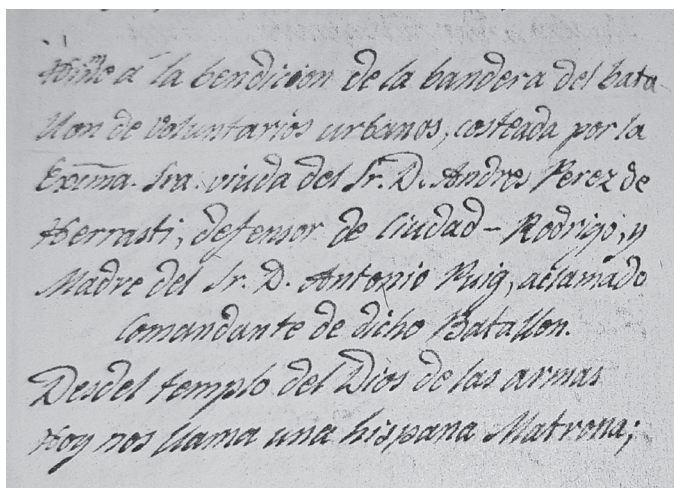 Himno á la bendicion de la bandera del bata
llon de voluntarios urbanos, costeada por la
Exc̅ma. Sra. viuda del Sr. D. Andres Perez de
Herrasti, defensor de Ciudad-Rodrigo, y
Madre del Sr. D. Antonio Puig, aclamado
Comandante de dicho Batallon.
Desdel templo del Dios de las armas
Hoy nos llama una hispana Matrona;